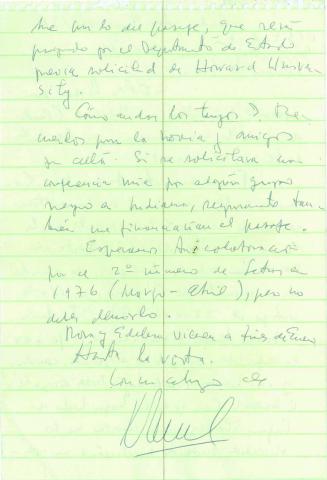 me un lo del pasaje, que será
pagado por el Departamento de Estado
previa solicitud de Howard Univer
sity.
Cómo andan los tuyos?
cuerdos para la novia y amigos
de allá. Si se solicitara una
conferencia mía por algún grupo
negro de Indiana, seguramente tam
bién me financiarían el pasaje.
Esperamos tu colaboración
por el 2º número de Letras en
1976 (Marzo - Abril), pero no
debes demorarlo.
Rosa y Edelma vienen a fines de Enero
Hasta la vista.
Con un abrazo de